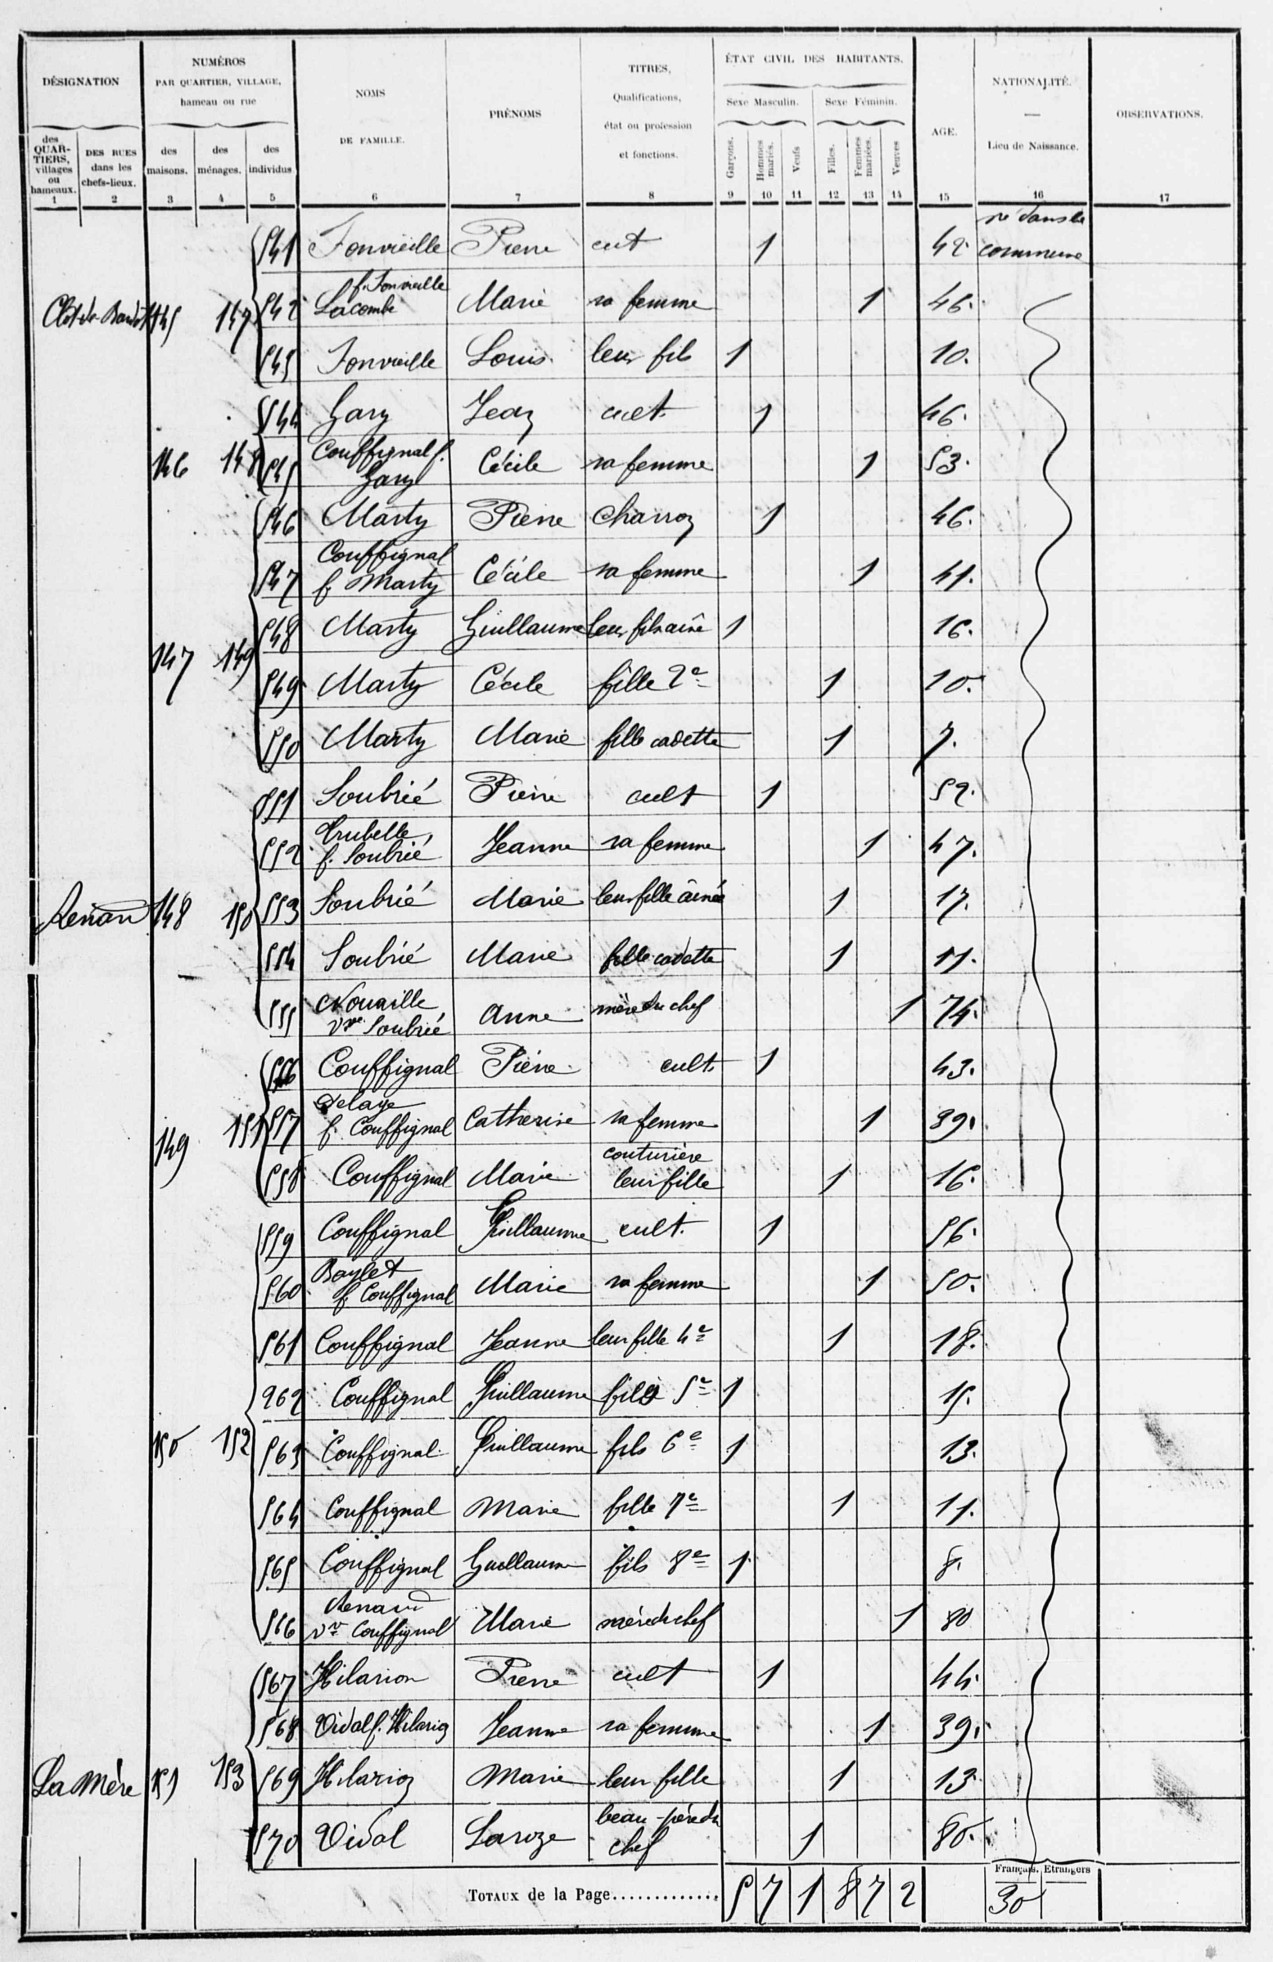 DÉSIGNATION
NUMÉROS
PAR QUARTIER, VILLAGE,
hameau ou rue
NOMS
DE FAMILLE.
PRÉNOMS
TITRES,
Qualifications,
état ou profession
et fonctions.
ÉTAT CIVIL DES HABITANTS.
Sexe Masculin. Sexe Féminin.
AGE.
NATIONALITÉ.
—
Lieu de Naissance.
OBSERVATIONS.
des QUAR-TIERS, villages ou hameaux.
DES RUES dans les chefs-lieux.
des maisons.
des ménages.
des individus
Garçons.
Hommes mariés.
Veufs
Filles.
Femmes mariées.
Veuves
1 2 3 4 5 6 7 8 9 10 11 12 13 14 15 16 17
541 Fonvieille Pierre cult 1 42 né dans la commune
145 147 542 f. Fonvieille Lacombe Marie sa femme 1 46.
543 Fonvieille Louis leur fils 1 10.
544 Gary Jean cult. 1 46.
146 148 545 Couffignal f. Gary Cécile sa femme 1 53.
546 Marty Pierre Charron 1 46.
547 Couffignal f. Marty Cécile sa femme 1 41.
548 Marty Guillaume leur fils aîné 1 16.
147 149 549 Marty Cécile fille 2e 1 10.
550 Marty Marie fille cadette 1 7.
551 Soubrié Pierre cult 1 52.
552 Trubelle f. Soubrié Jeanne sa femme 1 47.
Renan 148 150 553 Soubrié Marie leur fille aînée 1 17.
554 Soubrié Marie fille cadette 1 11.
555 Nouaille Vve Soubrié Anne mère du chef 1 74.
556 Couffignal Pierre cult. 1 43.
149 151 557 Delaye f. Couffignal Catherine sa femme 1 39.
558 Couffignal Marie couturière leur fille 1 16.
559 Couffignal Guillaume cult. 1 56.
560 Baylet f. Couffignal Marie sa femme 1 50.
561 Couffignal Jeanne leur fille 4e 1 18.
962 Couffignal Guillaume fils 5e 1 15.
150 152 563 Couffignal Guillaume fils 6e 1 13.
564 Couffignal Marie fille 7e 1 11.
565 Couffignal Guillaume fils 8e 1 8.
566 Renaud Vve Couffignal Marie mère du chef 1 80
567 Hilarion Pierre cult 1 44.
568 Vidal f. Hilarion Jeanne sa femme 1 39.
La Mère 151 153 569 Hilarion Marie leur fille 1 13.
570 Vidal Laroze beau-père du chef 1 80.
Français. Etrangers
TOTAUX de la Page............. 5 7 1 8 7 2 30